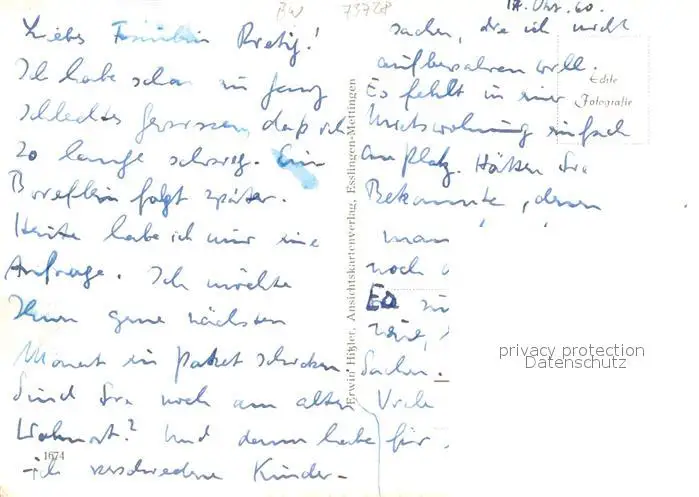 17. Okt. 60.
Liebes Fräulein Pretig!
Ich habe schon ein ganz
schlechtes Gewissen, daß ich
so lange schwieg. Ein
Brieflein folgt später.
Heute habe ich nur eine
Anfrage. Ich möchte
Ihnen gerne nächsten
Monat ein Paket schicken
Sind Sie noch am alten
Wohnort? Und dann habe
ich verschiedene Kinder-
sachen, die ich nicht
aufbewahren will.
Es fehlt in einer
Mietswohnung einfach
am Platz. Hätten Sie
Bekannte, denen
man
noch
Es
reine,
Sachen.
Viele
für
Echte
Fotografie
Erwin Hißler, Ansichtskartenverlag, Esslingen-Mettingen
1674
73728
privacy protection
Datenschutz